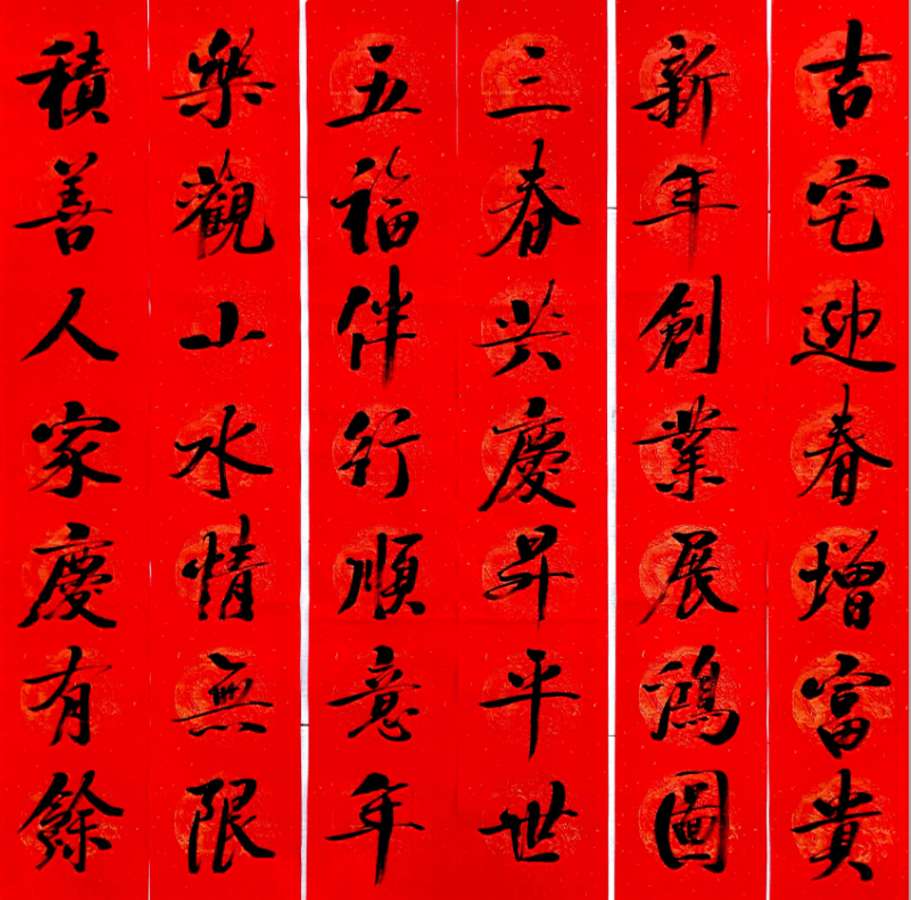 吉宅迎春增富貴
新年創業展鴻圖
三春興慶昇平世
五福伴行順意年
樂觀山水情無限
積善人家慶有餘